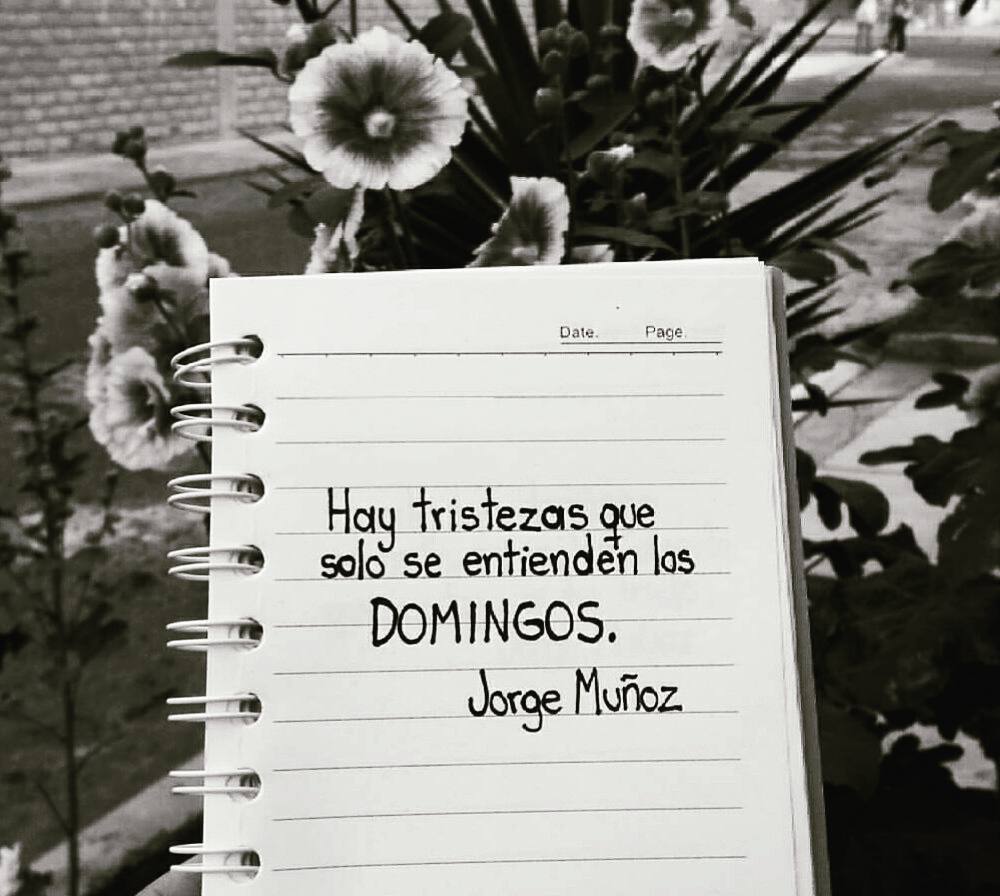 Date. Page.
Hay tristezas que
solo se entienden los
DOMINGOS.
Jorge Muñoz